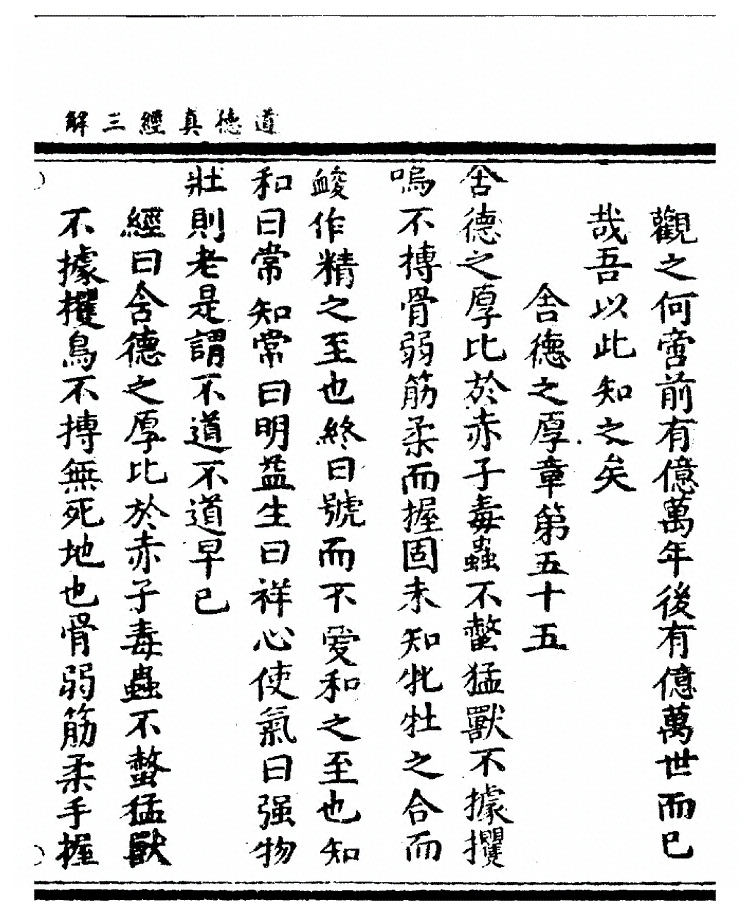 道德真經三解
觀之何啻前有億萬年後有億萬世而已
哉吾以此知之矣
含德之厚章第五十五
含德之厚比於赤子毒蟲不螫猛獸不據攫
鳴不搏骨弱筋柔而握固未知牝牡之合而
䘒作精之至也終日號而不愛和之至也知
和曰常知常曰明益生曰祥心使氣曰强物
壯則老是謂不道不道早已
經曰含德之厚比於赤子毒蟲不螫猛獸
不據攫鳥不搏無死地也骨弱筋柔手握